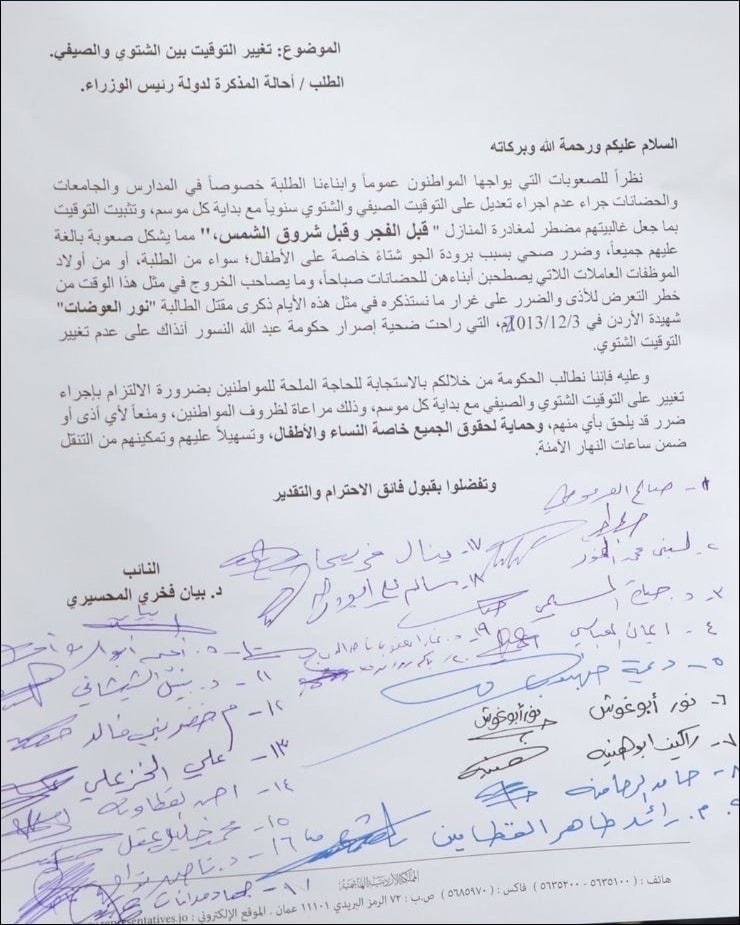 الموضوع: تغيير التوقيت بين الشتوي والصيفي.
الطلب / أحالة المذكرة لدولة رئيس الوزراء.
السلام عليكم ورحمة الله وبركاته
نظراً للصعوبات التي يواجها المواطنون عموماً وابناءنا الطلبة خصوصاً في المدارس والجامعات
والحضانات جراء عدم اجراء تعديل على التوقيت الصيفي والشتوي سنوياً مع بداية كل موسم، وتثبيت التوقيت
بما جعل غالبيتهم مضطر لمغادرة المنازل " قبل الفجر وقبل شروق الشمس،'' مما يشكل صعوبة بالغة
عليهم جميعاً، وضرر صحي بسبب برودة الجو شتاءً خاصة على الأطفال؛ سواء من الطلبة، أو من أولاد
الموظفات العاملات اللاتي يصطحبن أبناءهن للحضانات صباحاً، وما يصاحب الخروج في مثل هذا الوقت من
خطر التعرض للأذى والضرر على غرار ما نستذكره في مثل هذه الأيام ذكرى مقتل الطالبة "نور العوضات"
شهيدة الأردن في 2013/12/3م، التي راحت ضحية إصرار حكومة عبد الله النسور آنذاك على عدم تغيير
التوقيت الشتوي.
وعليه فإننا نطالب الحكومة من خلالكم بالاستجابة للحاجة الملحة للمواطنين بضرورة الالتزام بإجراء
تغيير على التوقيت الشتوي والصيفي مع بداية كل موسم، وذلك مراعاة لظروف المواطنين، ومنعاً لأي أذى أو
ضرر قد يلحق بأي منهم، وحماية لحقوق الجميع خاصة النساء والأطفال، وتسهيلاً عليهم وتمكينهم من التنقل
ضمن ساعات النهار الآمنة.
وتفضلوا بقبول فائق الاحترام والتقدير
النائب
د. بيان فخري المحسيري
بيان
١- صالح العرموطي
٢- لبنى محمد النمور
٣- د. حياة المسيمي
٤- ايمان العباسي
٥- ديمة طهبوب
٦- نور أبوغوش
نور أبوغوش
٧- راكين ابوهنيه
٨- حامد الرحامنه
٩- م. رائد طاهر القطامين
١١- د. بيتل الشيشاني
١٢- م خضر بني خالد
١٣- علي الخزعلي
١٤-
١٥- محمد خليل عقل
١٦- د. ناصر نواصره
١٧- ينال فريحات
١٨- سالم
١٩-
جهاد مدانات
المملكة الأردنية الهاشمية
هاتف : (٥٦٣٥١٠٠ - ٥٦٣٥٢٠٠) فاكس : (٥٦٨٥٩٧٠) ص.ب : ٧٢ الرمز البريدي ١١١٠١ عمان . الموقع الإلكتروني : representatives.jo